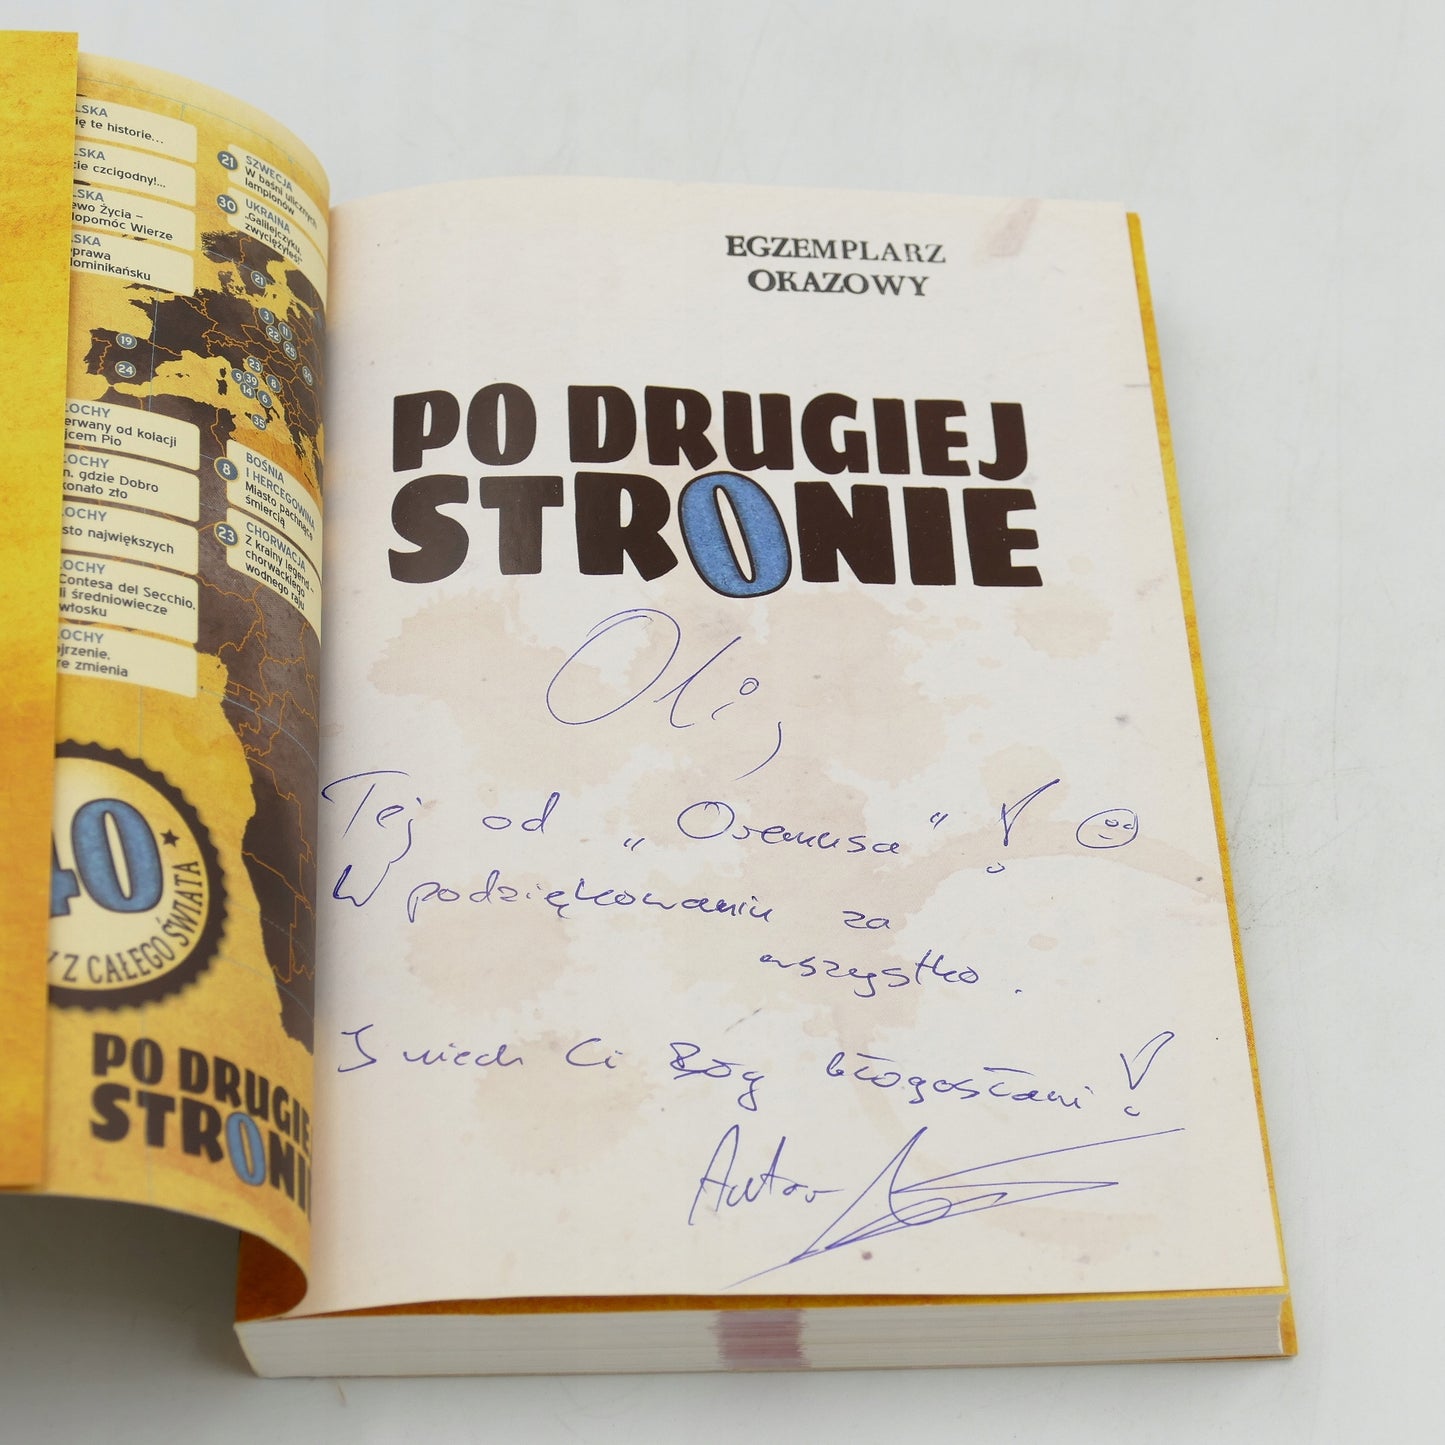 LSKA
ię te historie...
LSKA
cie czcigodny!...
LSKA
ewo Życia –
dopomóc Wierze
LSKA
prawa
dominikańsku
21 SZWECJA
W baśni ulicznych
lampionów
30 UKRAINA
„Galilejczyku,
zwyciężyłeś!"
21
3
11
22
25
19
24
30
23
9
39
8
14
6
35
ŁOCHY
erwany od kolacji
jcem Pio
ŁOCHY
n. gdzie Dobro
konało zło
ŁOCHY
sto największych
ŁOCHY
Contesa del Secchio,
li średniowiecze
włosku
ŁOCHY
ojrzenie,
re zmienia
8 BOŚNIA
I HERCEGOWINA
Miasto pachnące
śmiercią
23 CHORWACJA
Z krainy legend –
chorwackiego
wodnego raju
40
I Z CAŁEGO ŚWIATA
PO DRUGIE
STRONI
EGZEMPLARZ
OKAZOWY
PO DRUGIEJ
STRONIE
Oli,
Tej od „Oremusa" !
W podziękowaniu za
wszystko.
I niech Ci Bóg błogosławi!
Autor